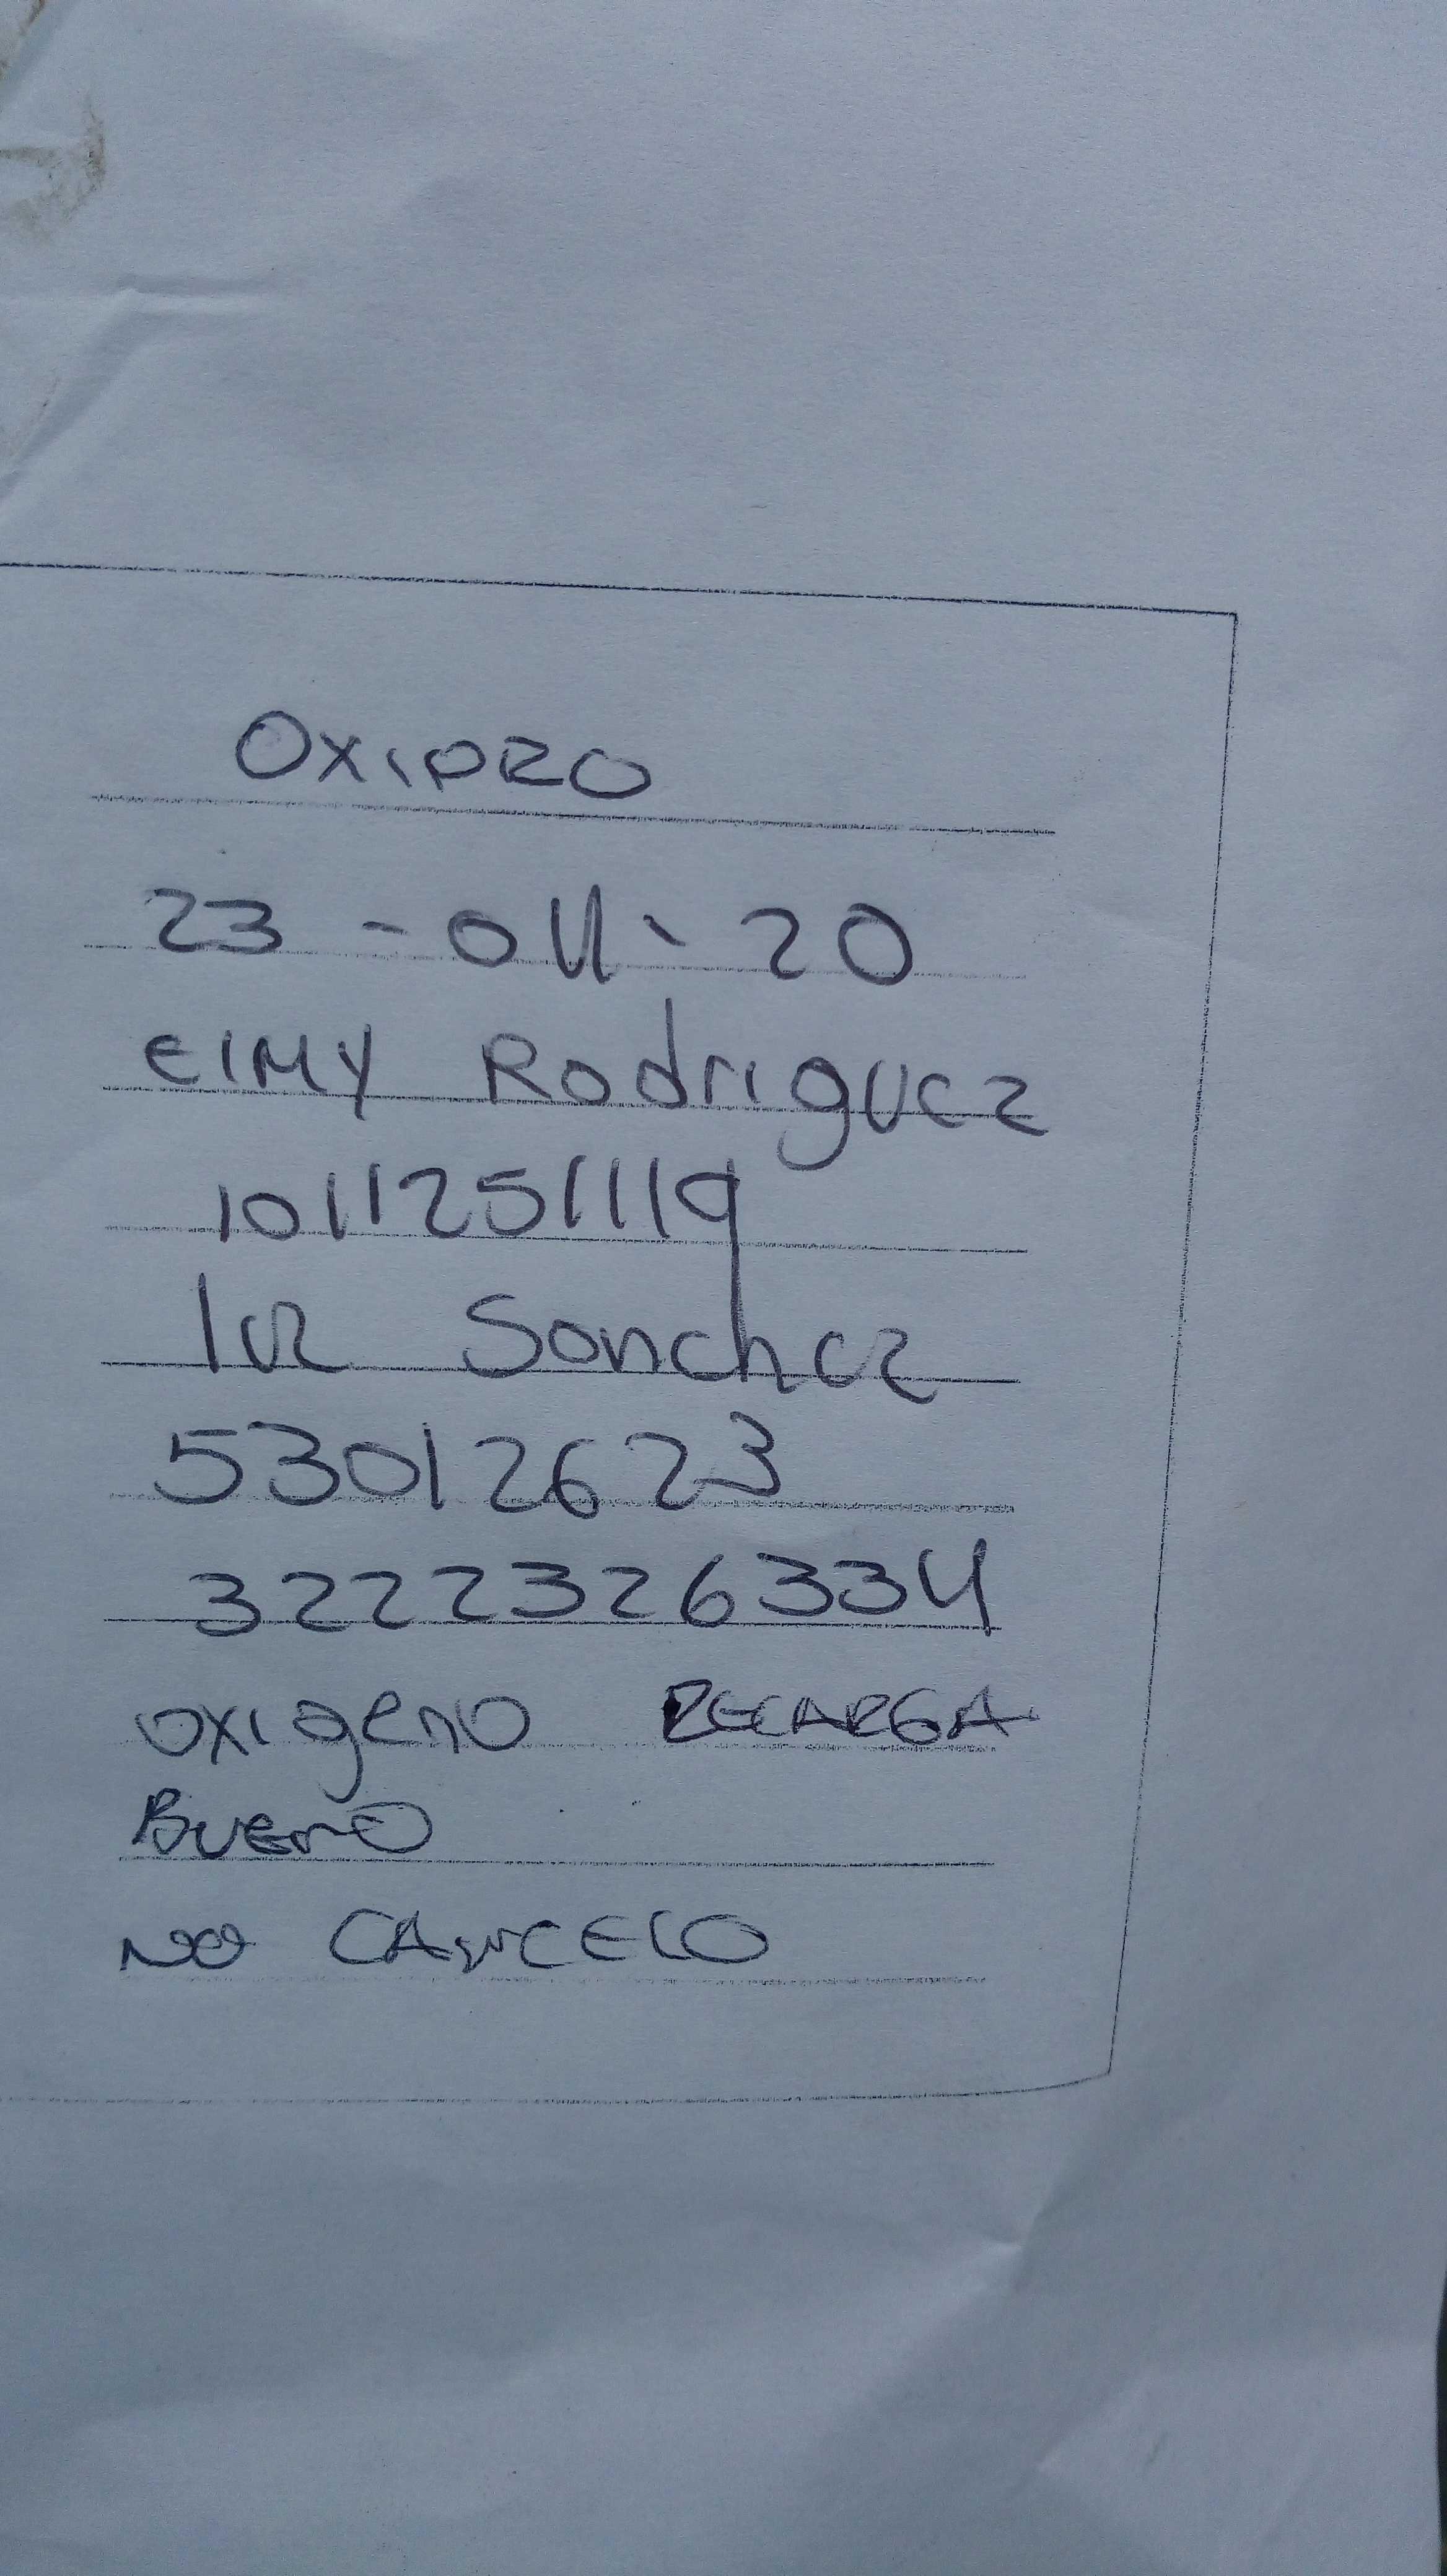 OXIPRO
23-04-20
EIMY Rodriguez
1011251119
luz Sanchez
53012623
3222326334
oxigeno RECARGA
BUENO
NO CANCELO